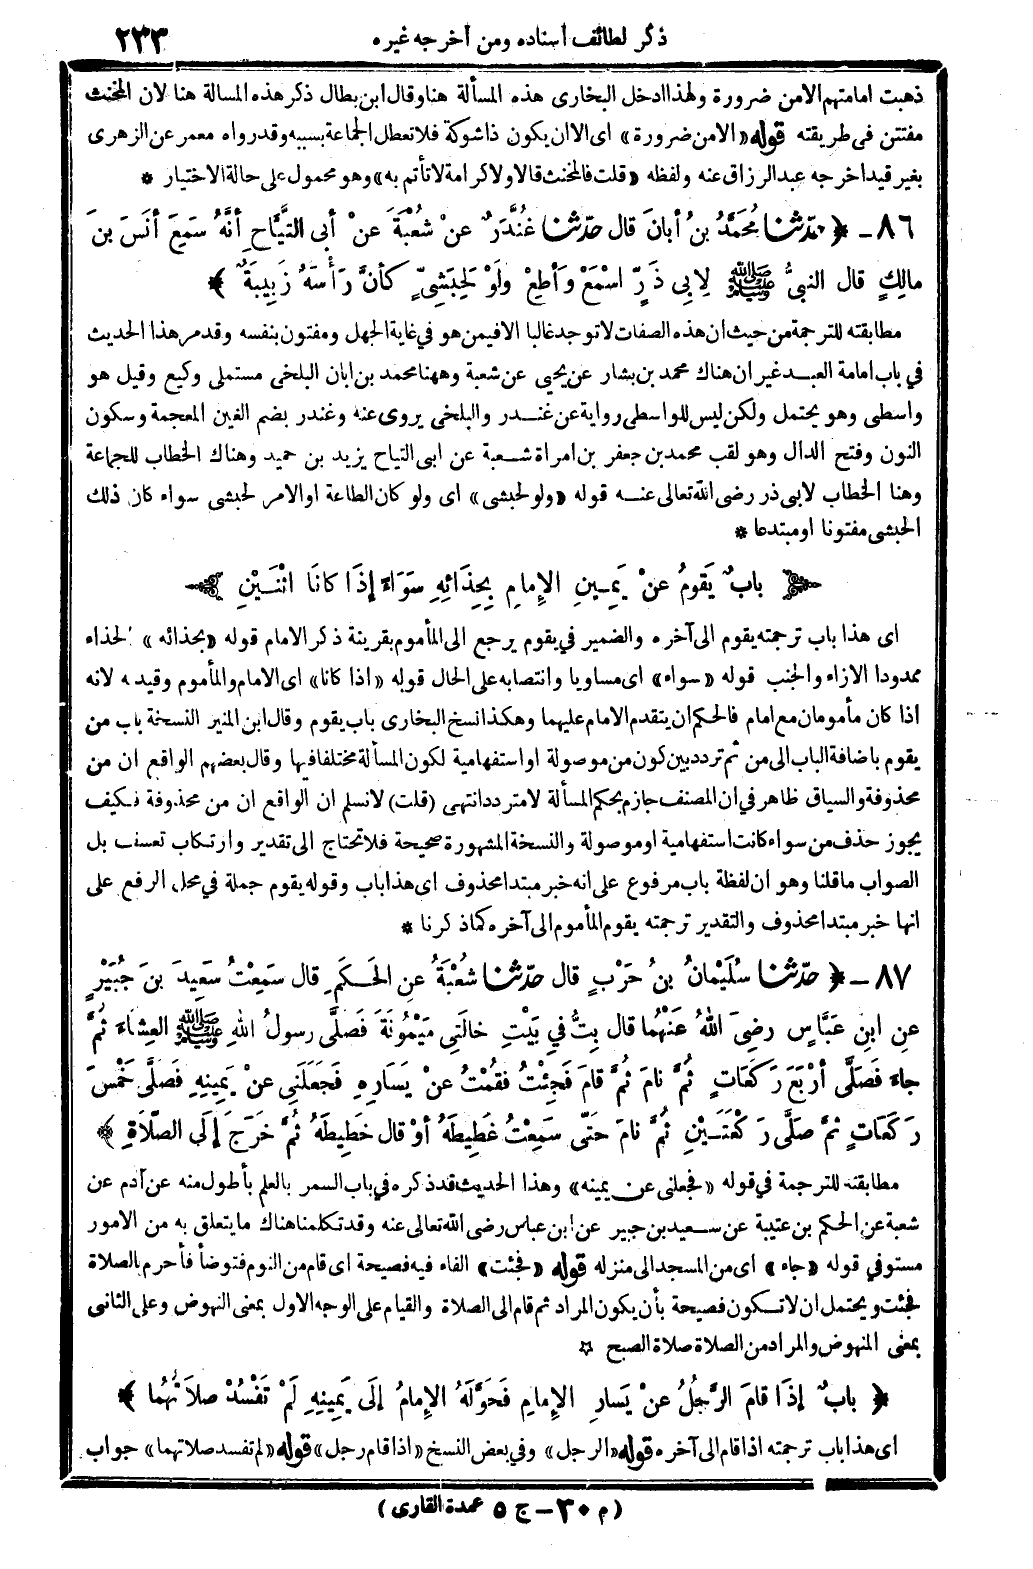 ذكر لطائف أسناده ومن أخرجه غيره ٢٣٣
ذهبت امامتهم الا من ضرورة ولهذا ادخل البخارى هذه المسألة هنا وقال ابن بطال ذكر هذه المسالة هنا لان المخنث
مفتتن فى طريقته قوله «الا من ضرورة» اى الا ان يكون ذا شوكة فلا تعطل الجماعة بسببه وقد رواه معمر عن الزهرى
بغير قيد اخرجه عبد الرزاق عنه ولفظه «قلت فالمخنث قال لا ولا كرامة لا تأتم به» وهو محمول على حالة الاختيار *
٨٦ - ﴿ حدّثنا مُحَمَّدُ بنُ أبانَ قال حدّثنا غُنْدَرٌ عنْ شُعْبَةَ عنْ أبى التَّيَّاحِ أنَّهُ سَمِعَ أنَسَ بنَ
مالِكٍ قال النبىُّ ﷺ لِابِى ذَرٍّ اسْمَعْ وَأطِعْ ولَوْ لِحَبَشِىٍّ كَأنَّ رَأْسَهُ زَبِيبَةٌ ﴾
مطابقته للترجمة من حيث ان هذه الصفات لا توجد غالبا الا فيمن هو في غاية الجهل ومفتون بنفسه وقد مر هذا الحديث
في باب امامة العبد غير ان هناك محمد بن بشار عن يحيى عن شعبة وههنا محمد بن ابان البلخى مستملى وكيع وقيل هو
واسطى وهو يحتمل ولكن ليس للواسطى رواية عن غندر والبلخى يروى عنه وغندر بضم الغين المعجمة وسكون
النون وفتح الدال وهو لقب محمد بن جعفر بن امراة شعبة عن ابى التياح يزيد بن حميد وهناك الخطاب للجماعة
وهنا الخطاب لابى ذر رضى الله تعالى عنه قوله «ولو لحبشى» اى ولو كان الطاعة او الامر لحبشى سواء كان ذلك
الحبشى مفتونا او مبتدعا *
﴿ بابٌ يَقومُ عنْ يَمِينِ الإمامِ بِحِذَائِهِ سَوَاءً إذَا كانَا اثْنَيْنِ ﴾
اى هذا باب ترجمته يقوم الى آخره والضمير في يقوم يرجع الى المأموم بقرينة ذكر الامام قوله «بحذائه» الحذاء
ممدودا الازاء والجنب قوله «سواء» اى مساويا وانتصابه على الحال قوله «اذا كانا» اى الامام والمأموم وقيد به لانه
اذا كان مأمومان مع امام فالحكم ان يتقدم الامام عليهما وهكذا نسخ البخارى باب يقوم وقال ابن المنير النسخة باب من
يقوم باضافة الباب الى من ثم تردد بين كون من موصولة او استفهامية لكون المسألة مختلفا فيها وقال بعضهم الواقع ان من
محذوفة والسياق ظاهر في ان المصنف جازم بحكم المسألة لا متردد انتهى (قلت) لا نسلم ان الواقع ان من محذوفة فكيف
يجوز حذف من سواء كانت استفهامية او موصولة والنسخة المشهورة صحيحة فلا تحتاج الى تقدير وارتكاب تعسف بل
الصواب ما قلنا وهو ان لفظة باب مرفوع على انه خبر مبتدا محذوف اى هذا باب وقوله يقوم جملة في محل الرفع على
انها خبر مبتدا محذوف والتقدير ترجمته يقوم المأموم الى آخره كما ذكرنا *
٨٧ - ﴿ حدّثنا سُلَيْمانُ بنُ حَرْبٍ قال حدّثنا شُعْبَةُ عنِ الحَكَمِ قال سَمِعْتُ سَعِيدَ بنَ جُبَيْرٍ
عنِ ابنِ عَبَّاسٍ رضِىَ اللهُ عَنْهُما قال بِتُّ في بَيْتِ خالَتِى مَيْمُونَةَ فَصَلَّى رسولُ اللهِ ﷺ العِشاءَ ثُمَّ
جاءَ فَصَلَّى أرْبَعَ رَكَعَاتٍ ثُمَّ نامَ ثُمَّ قامَ فَجِئْتُ فقُمْتُ عنْ يَسَارِهِ فَجَعَلَنِى عنْ يَمِينِهِ فَصَلَّى خَمْسَ
رَكَعَاتٍ ثمَّ صَلَّى رَكْعَتَيْنِ ثُمَّ نامَ حَتَّى سَمِعْتُ غَطِيطَهُ أوْ قال خَطِيطَهُ ثُمَّ خَرَجَ إلَى الصَّلاَةِ ﴾
مطابقته للترجمة في قوله «فجعلنى عن يمينه» وهذا الحديث قد ذكره في باب السمر بالعلم بأطول منه عن آدم عن
شعبة عن الحكم بن عتيبة عن سعيد بن جبير عن ابن عباس رضى الله تعالى عنه وقد تكلمنا هناك ما يتعلق به من الامور
مستوفي قوله «جاء» اى من المسجد الى منزله قوله «فجئت» الفاء فيه فصيحة اى قام من النوم فتوضأ فأحرم بالصلاة
فجئت ويحتمل ان لا تكون فصيحة بأن يكون المراد ثم قام الى الصلاة والقيام على الوجه الاول بمعنى النهوض وعلى الثانى
بمعنى المنهوض والمراد من الصلاة صلاة الصبح ☆
﴿ بابٌ إذَا قامَ الرَّجُلُ عنْ يَسارِ الإمامِ فَحَوَّلَهُ الإمامُ إلَى يَمِينِهِ لَمْ تَفْسُدْ صلاَتُهُما ﴾
اى هذا باب ترجمته اذا قام الى آخره قوله «الرجل» وفي بعض النسخ «اذا قام رجل» قوله «لم تفسد صلاتهما» جواب
(م ٣٠ - ج ٥ عمدة القارى)